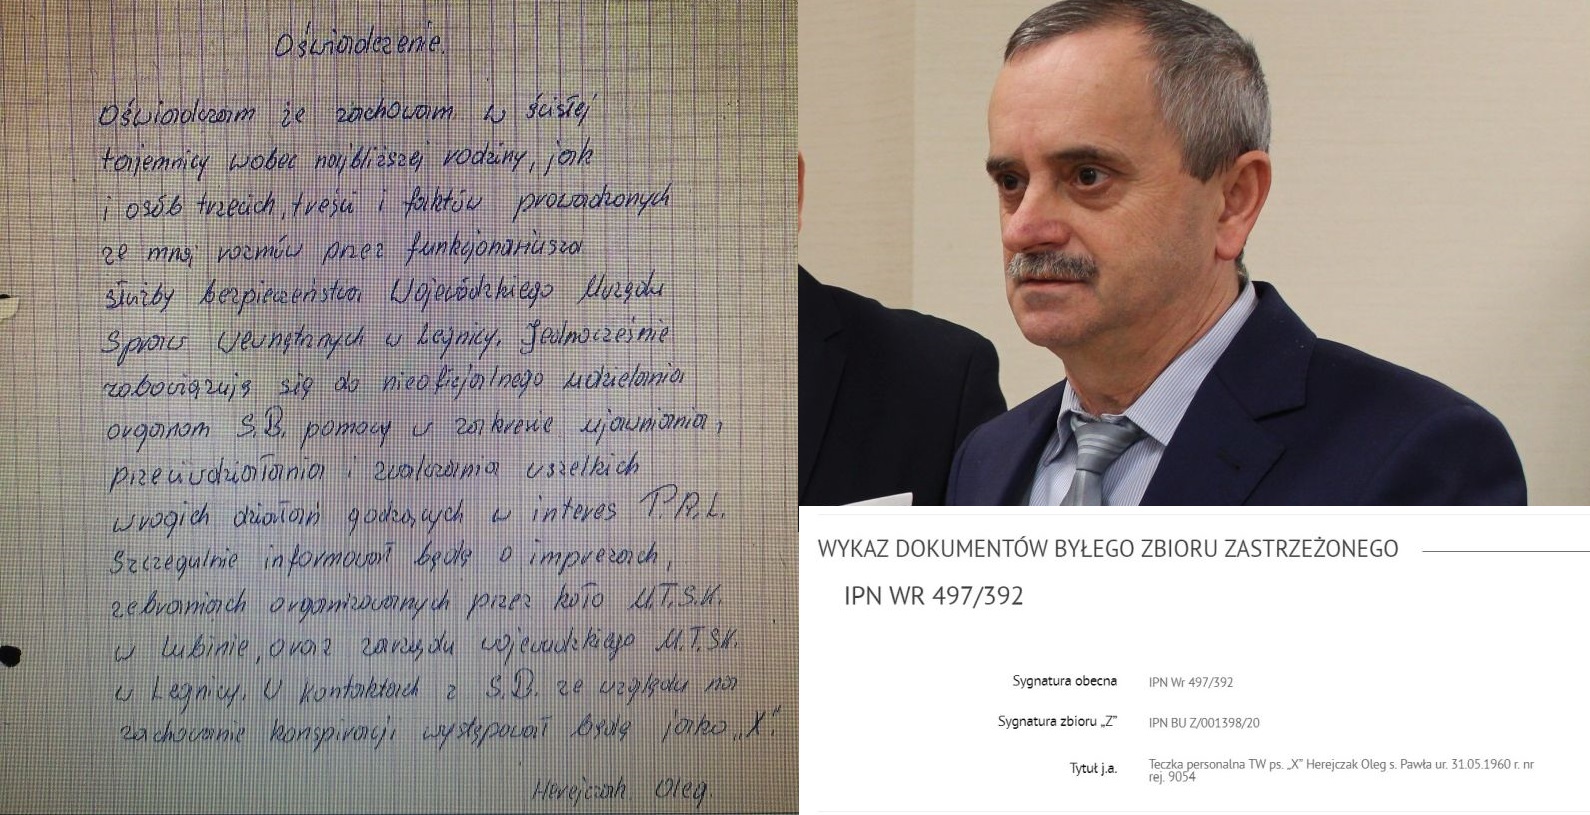 Oświadczenie.
Oświadczam że zachowam w ścisłej
tajemnicy wobec najbliższej rodziny, jak
i osób trzecich, treści i faktów prowadzonych
ze mną rozmów przez funkcjonariusza
służby bezpieczeństwa Wojewódzkiego Urzędu
Spraw Wewnętrznych w Legnicy. Jednocześnie
zobowiązuję się do nieoficjalnego udzielania
organom S.B. pomocy w zakresie ujawniania,
przeciwdziałania i zwalczania wszelkich
wrogich działań godzących w interes P.R.L.
Szczegulnie informował będę o imprezach,
zebraniach organizowanych przez koło U.T.S.K.
w Lubinie, oraz zarządu wojewudzkiego U.T.S.K.
w Legnicy. W kontaktach z S.B. ze względu na
zachowanie konspiracji występował będę jako „X".
Herejczak Oleg.
WYKAZ DOKUMENTÓW BYŁEGO ZBIORU ZASTRZEŻONEGO
IPN WR 497/392
Sygnatura obecna IPN Wr 497/392
Sygnatura zbioru „Z” IPN BU Z/001398/20
Tytuł j.a. Teczka personalna TW ps. „X” Herejczak Oleg s. Pawła ur. 31.05.1960 r. nr
rej. 9054